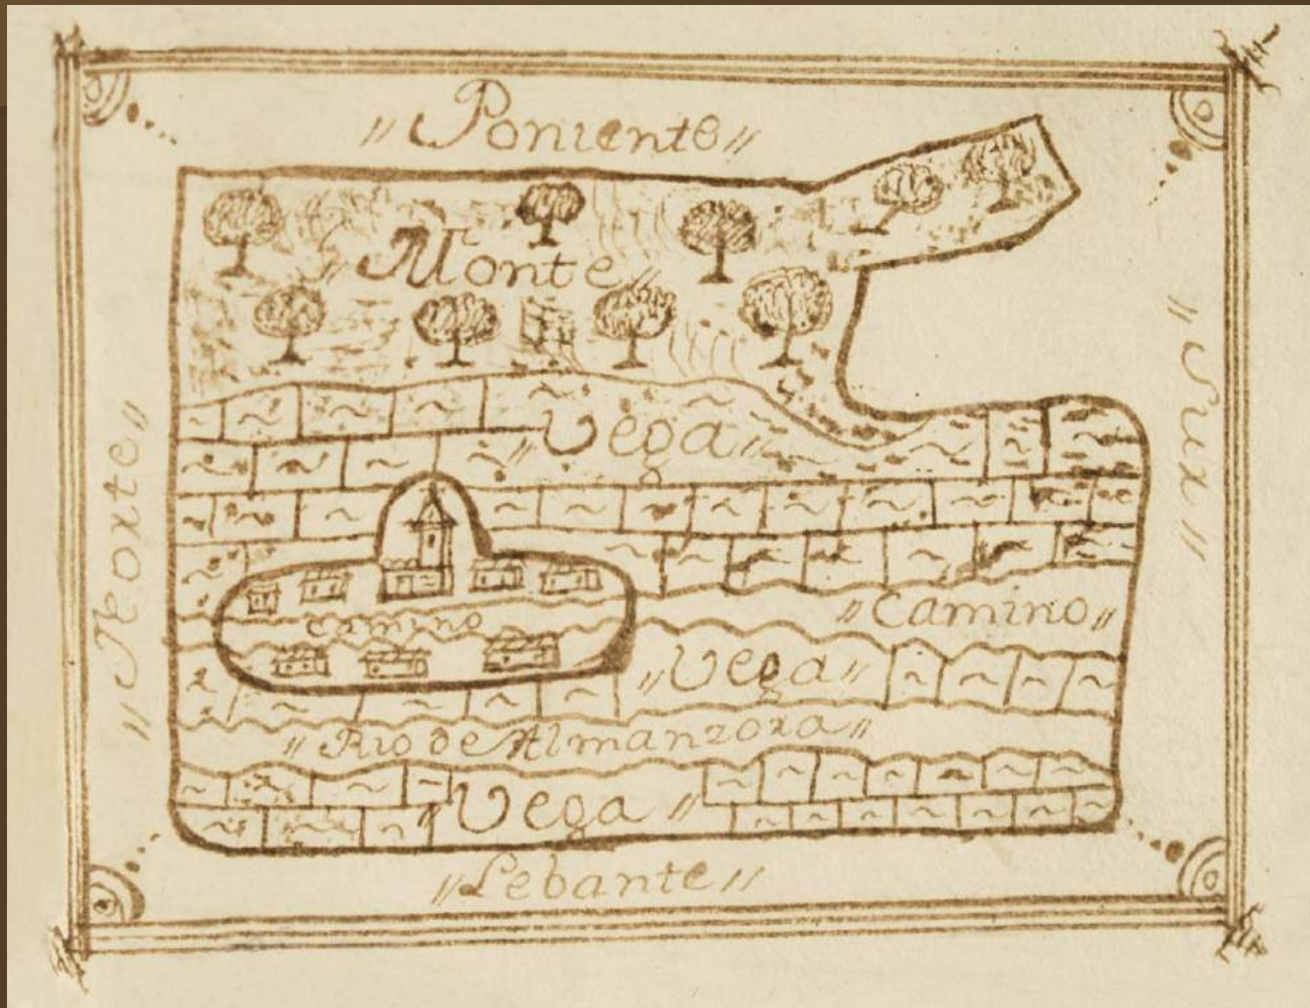 "Poniente"
"Monte"
"Vega"
"Norte"
"Sur"
camino
"Camino"
"Vega"
"Rio de Almanzora"
"Vega"
"Lebante"